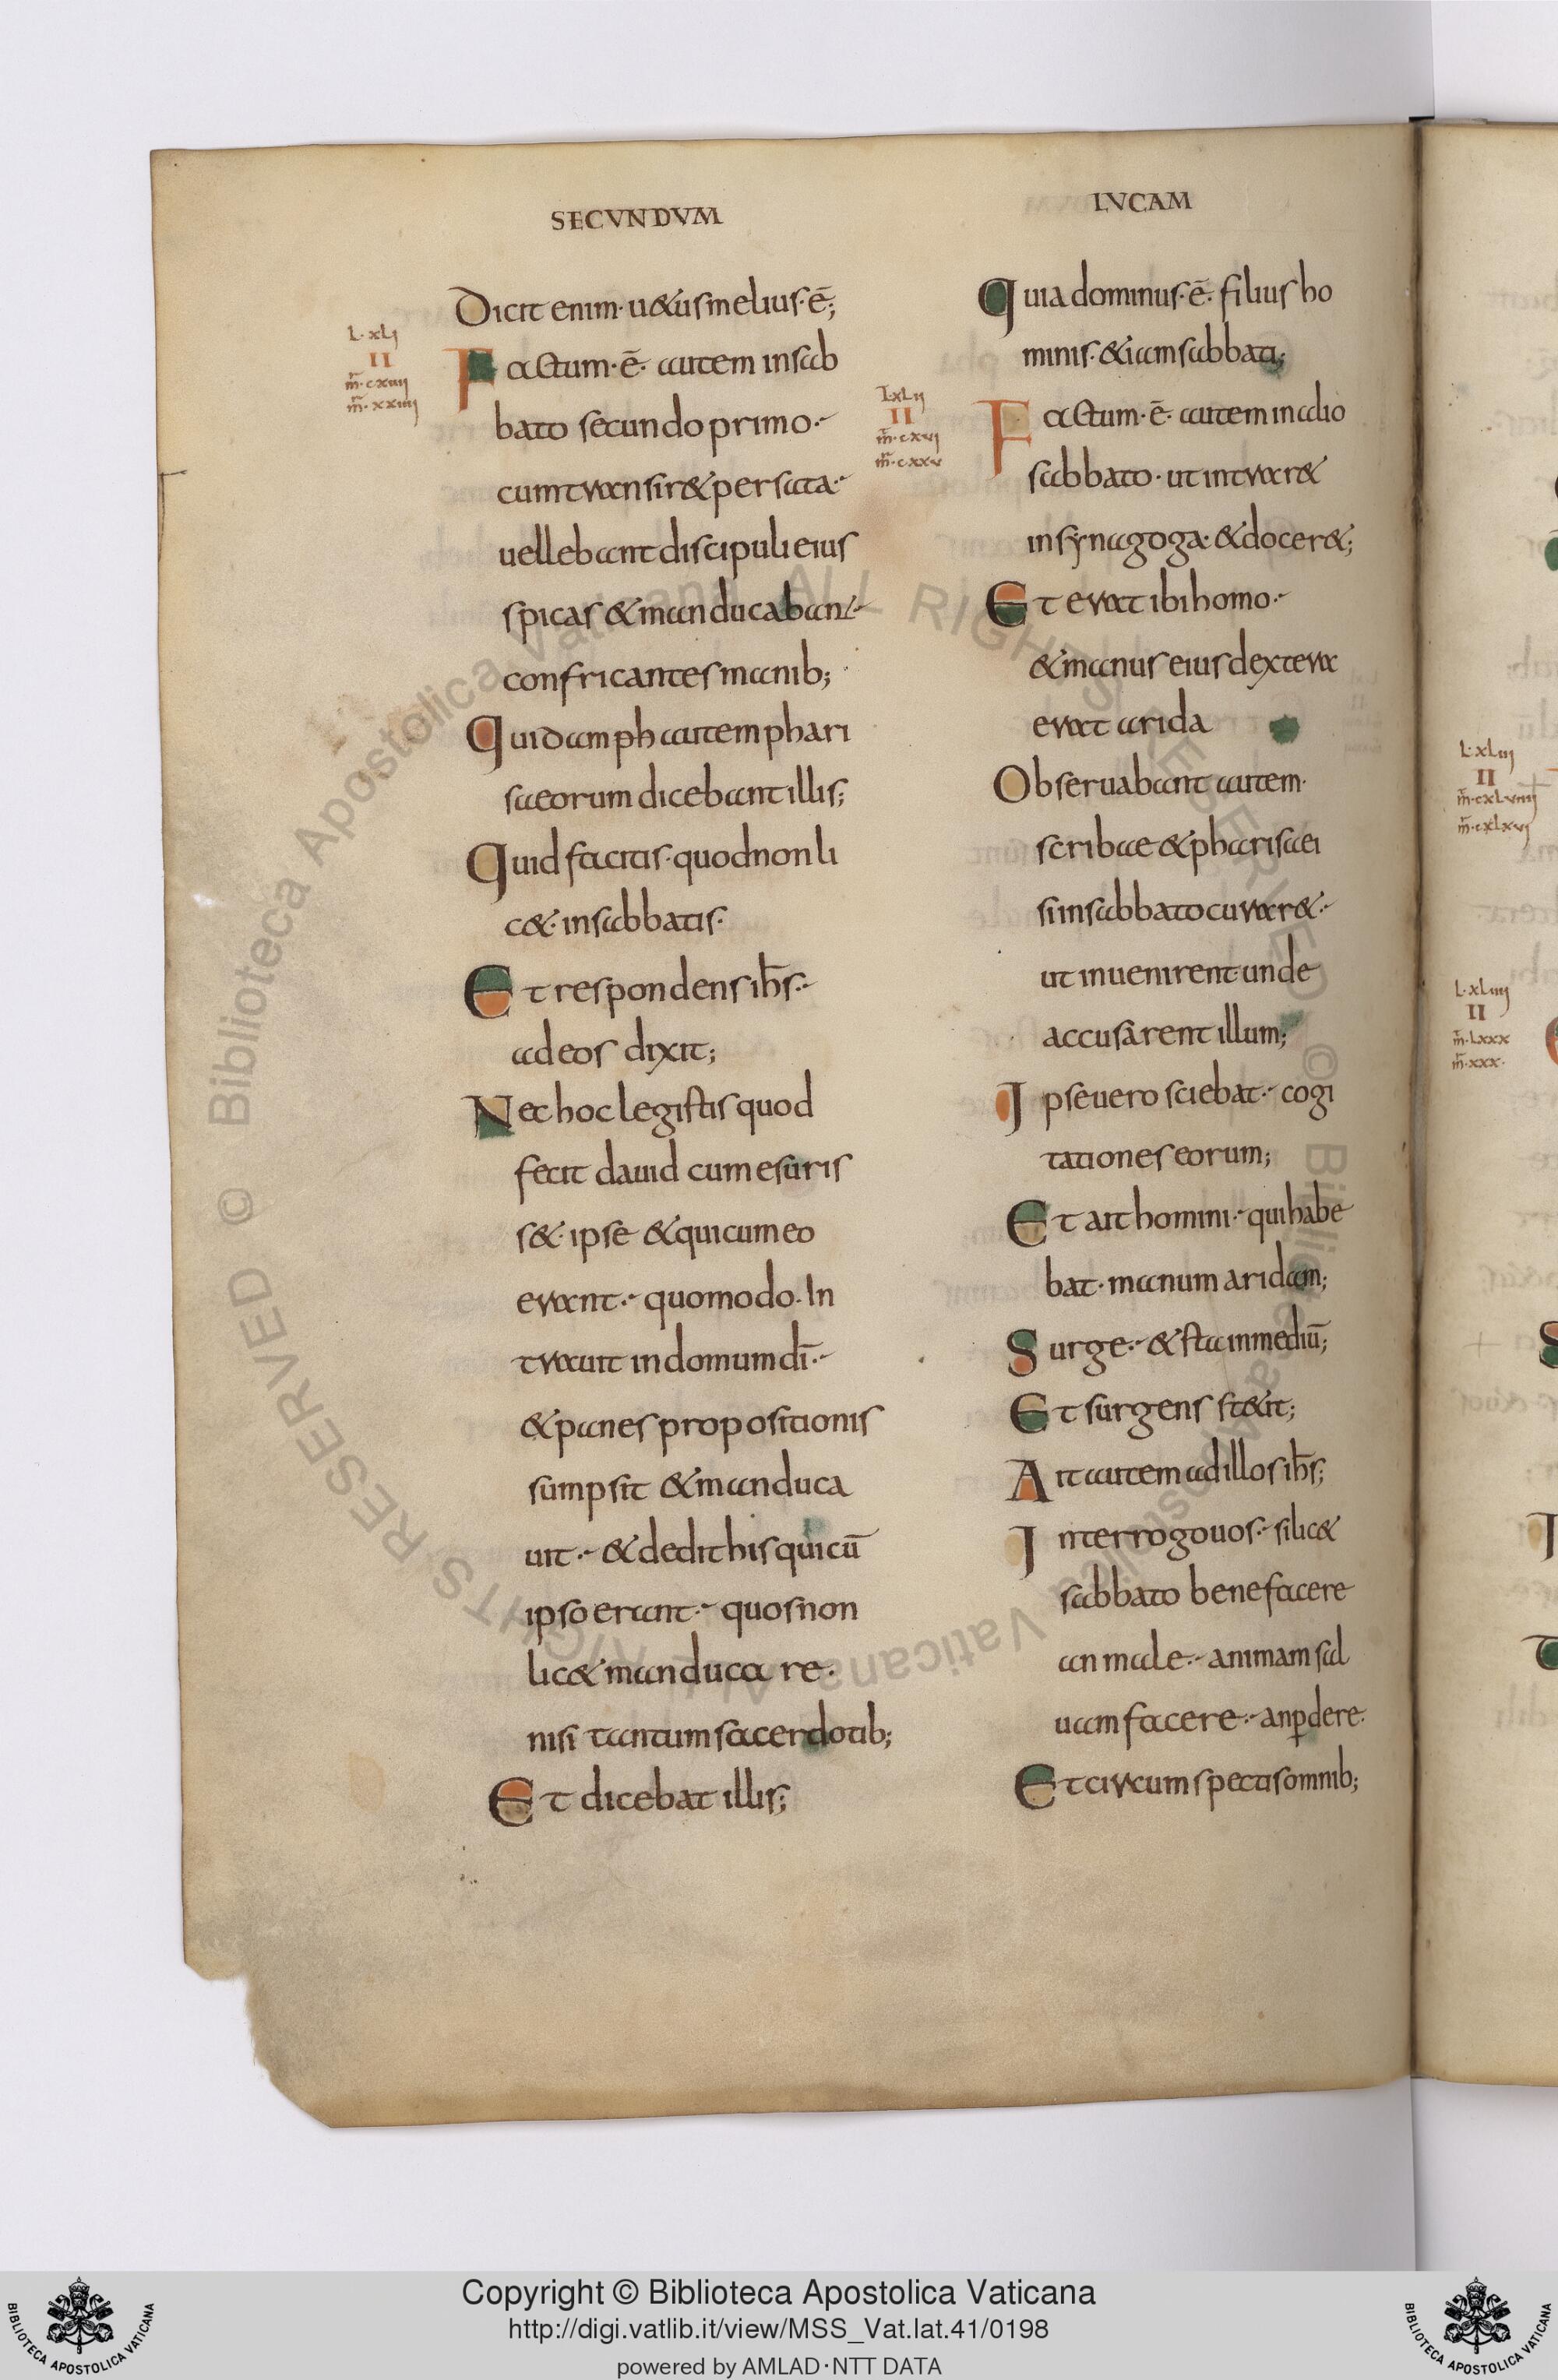 SECVNDVM
Dicit enim· u&us melius· ē;
L·xLı
II
m̄·cxıııı
m̄·xxıııı
Factum· ē· autem in sab
bato secundo primo·
cum transir& per sata·
uellebant discipuli eius
spicas & manducabant·
confricantes manib;
Quidam ph autem phari
saeorum dicebant illis;
Quid facitis· quod non li
c&· in sabbatis·
Et respondens ih̄s·
ad eos dixit;
Nec hoc legistis quod
fecit dauid cum esuris
s&· ipse & qui cum eo
erant· quomodo· In
trauit in domum dī·
& panes propositionis
sumpsit & manduca
uit· & dedit his qui cū
ipso erant· quos non
lic& manducare·
nisi tantum sacerdotib;
Et dicebat illis;
LVCAM
Quia dominus· ē· filius ho
minis· & iam sabbati;
LxLıı
II
m̄·cxvı
m̄·cxxv
Factum· ē· autem in alio
sabbato· ut intrar&
in synagoga· & docer&;
Et erat ibi homo·
& manus eius dextera
erat arida
Obseruabant autem·
scribae & pharisaei
si in sabbato curar&·
ut inuenirent unde
accusarent illum;
Ipse uero sciebat· cogi
tationes eorum;
Et ait homini· qui habe
bat· manum aridam;
Surge· & sta in mediū;
Et surgens st&it;
Ait autem ad illos ih̄s;
Interrogo uos· si lic&
sabbato benefacere
an male· animam sal
uam facere· an ꝑdere·
Et circumspectis omnib;
L·xLııı
II
m̄·cxLvıııı
m̄·cxlxvı
L·xLıııı
II
m̄·Lxxx
m̄·xxx·
© Biblioteca Apostolica Vaticana ALL RIGHTS RESERVED © Biblioteca Apostolica Vaticana ALL RIGHTS RESERVED
Copyright © Biblioteca Apostolica Vaticana
http://digi.vatlib.it/view/MSS_Vat.lat.41/0198
powered by AMLAD·NTT DATA
BIBLIOTECA APOSTOLICA VATICANA
BIBLIOTECA APOSTOLICA VATICANA